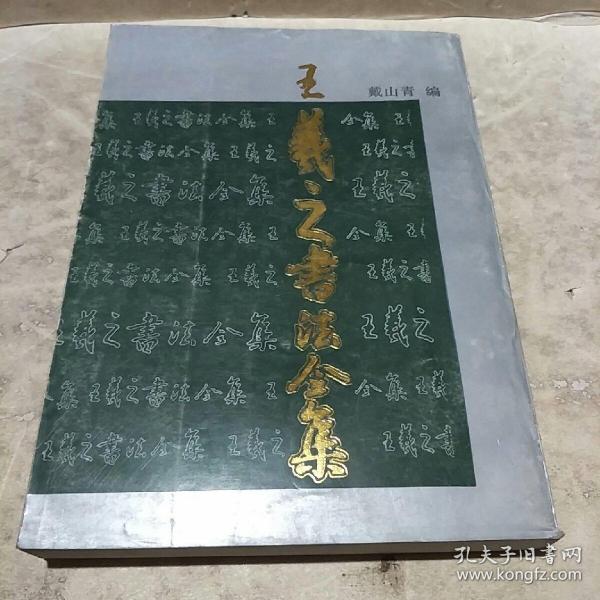 王羲之书法全集
戴山青 编
集 王羲之書法全集 王 全集 王
王羲之書法全集 王羲之 王羲之
羲之書法全集 王羲之
集 王羲之書法全集 王 全集 王
王羲之書法全集 王羲 王羲之書
王羲之書法全集 王羲之
集 王羲之書法全集 王羲 全集 王羲
王羲之書法全集 王羲之 王羲之書
孔夫子旧书网
www.kongfz.com